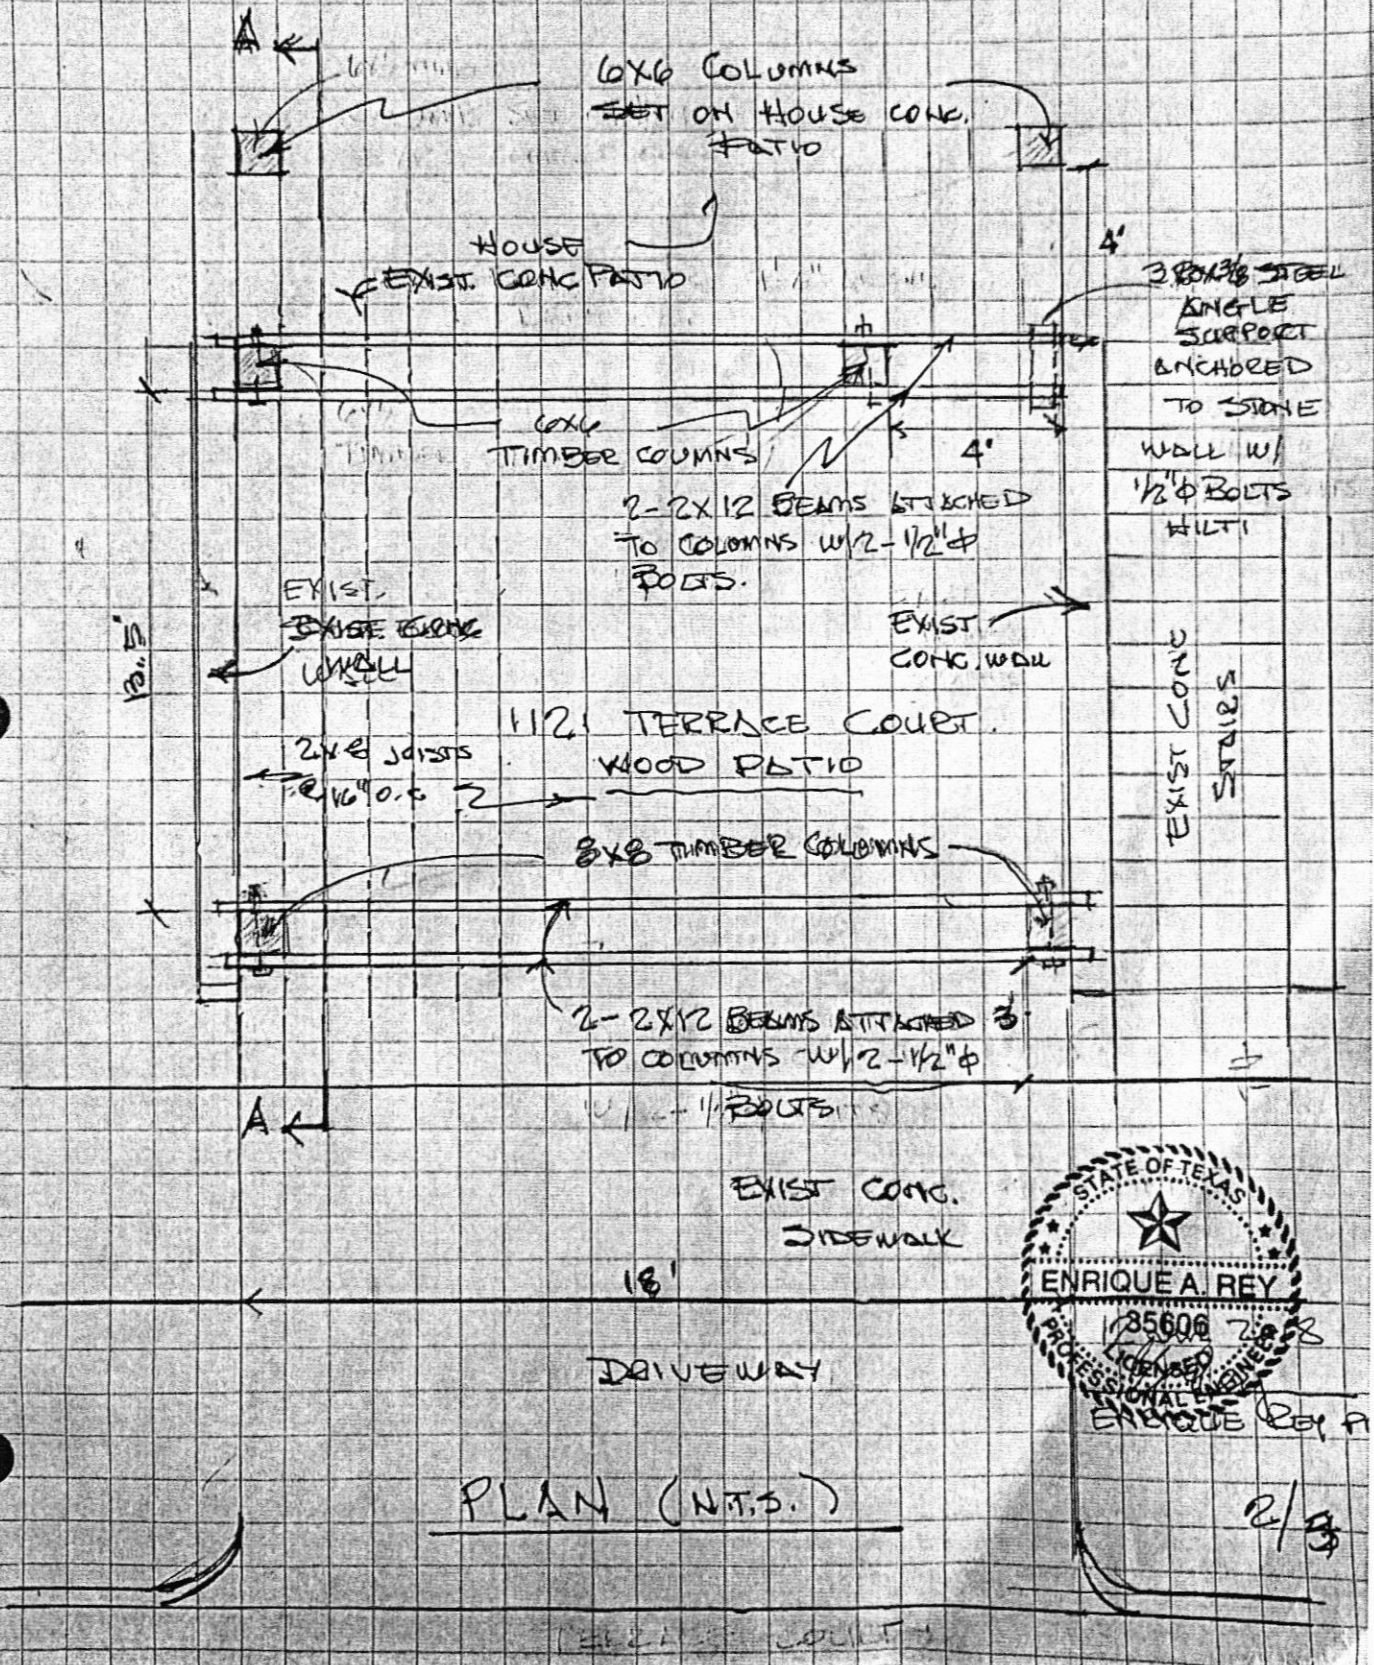 A
6X6 COLUMNS
SET ON HOUSE CONC.
PATIO
HOUSE
EXIST. CONC PATIO
4'
STEEL
ANGLE
SUPPORT
ANCHORED
TO STONE
WALL W/
1/2"φ BOLTS
HILTI
6X6
TIMBER COLUMNS
4'
2-2X12 BEAMS ATTACHED
TO COLUMNS W/2-1/2"φ
BOLTS.
EXIST.
WALL
EXIST
CONC. WALL
EXIST CONC
STAIRS
1121 TERRACE COURT.
WOOD PATIO
2X8 JOISTS
16" O.C
8X8 TIMBER COLUMNS
2-2X12 BEAMS ATTACHED
3'
TO COLUMNS W/2-1/2"φ
BOLTS
A
EXIST CONC.
SIDEWALK
18'
DRIVEWAY
STATE OF TEXAS
ENRIQUE A. REY
35606
LICENSED
PROFESSIONAL ENGINEER
ENRIQUE REY
PLAN (N.T.S.)
2/5